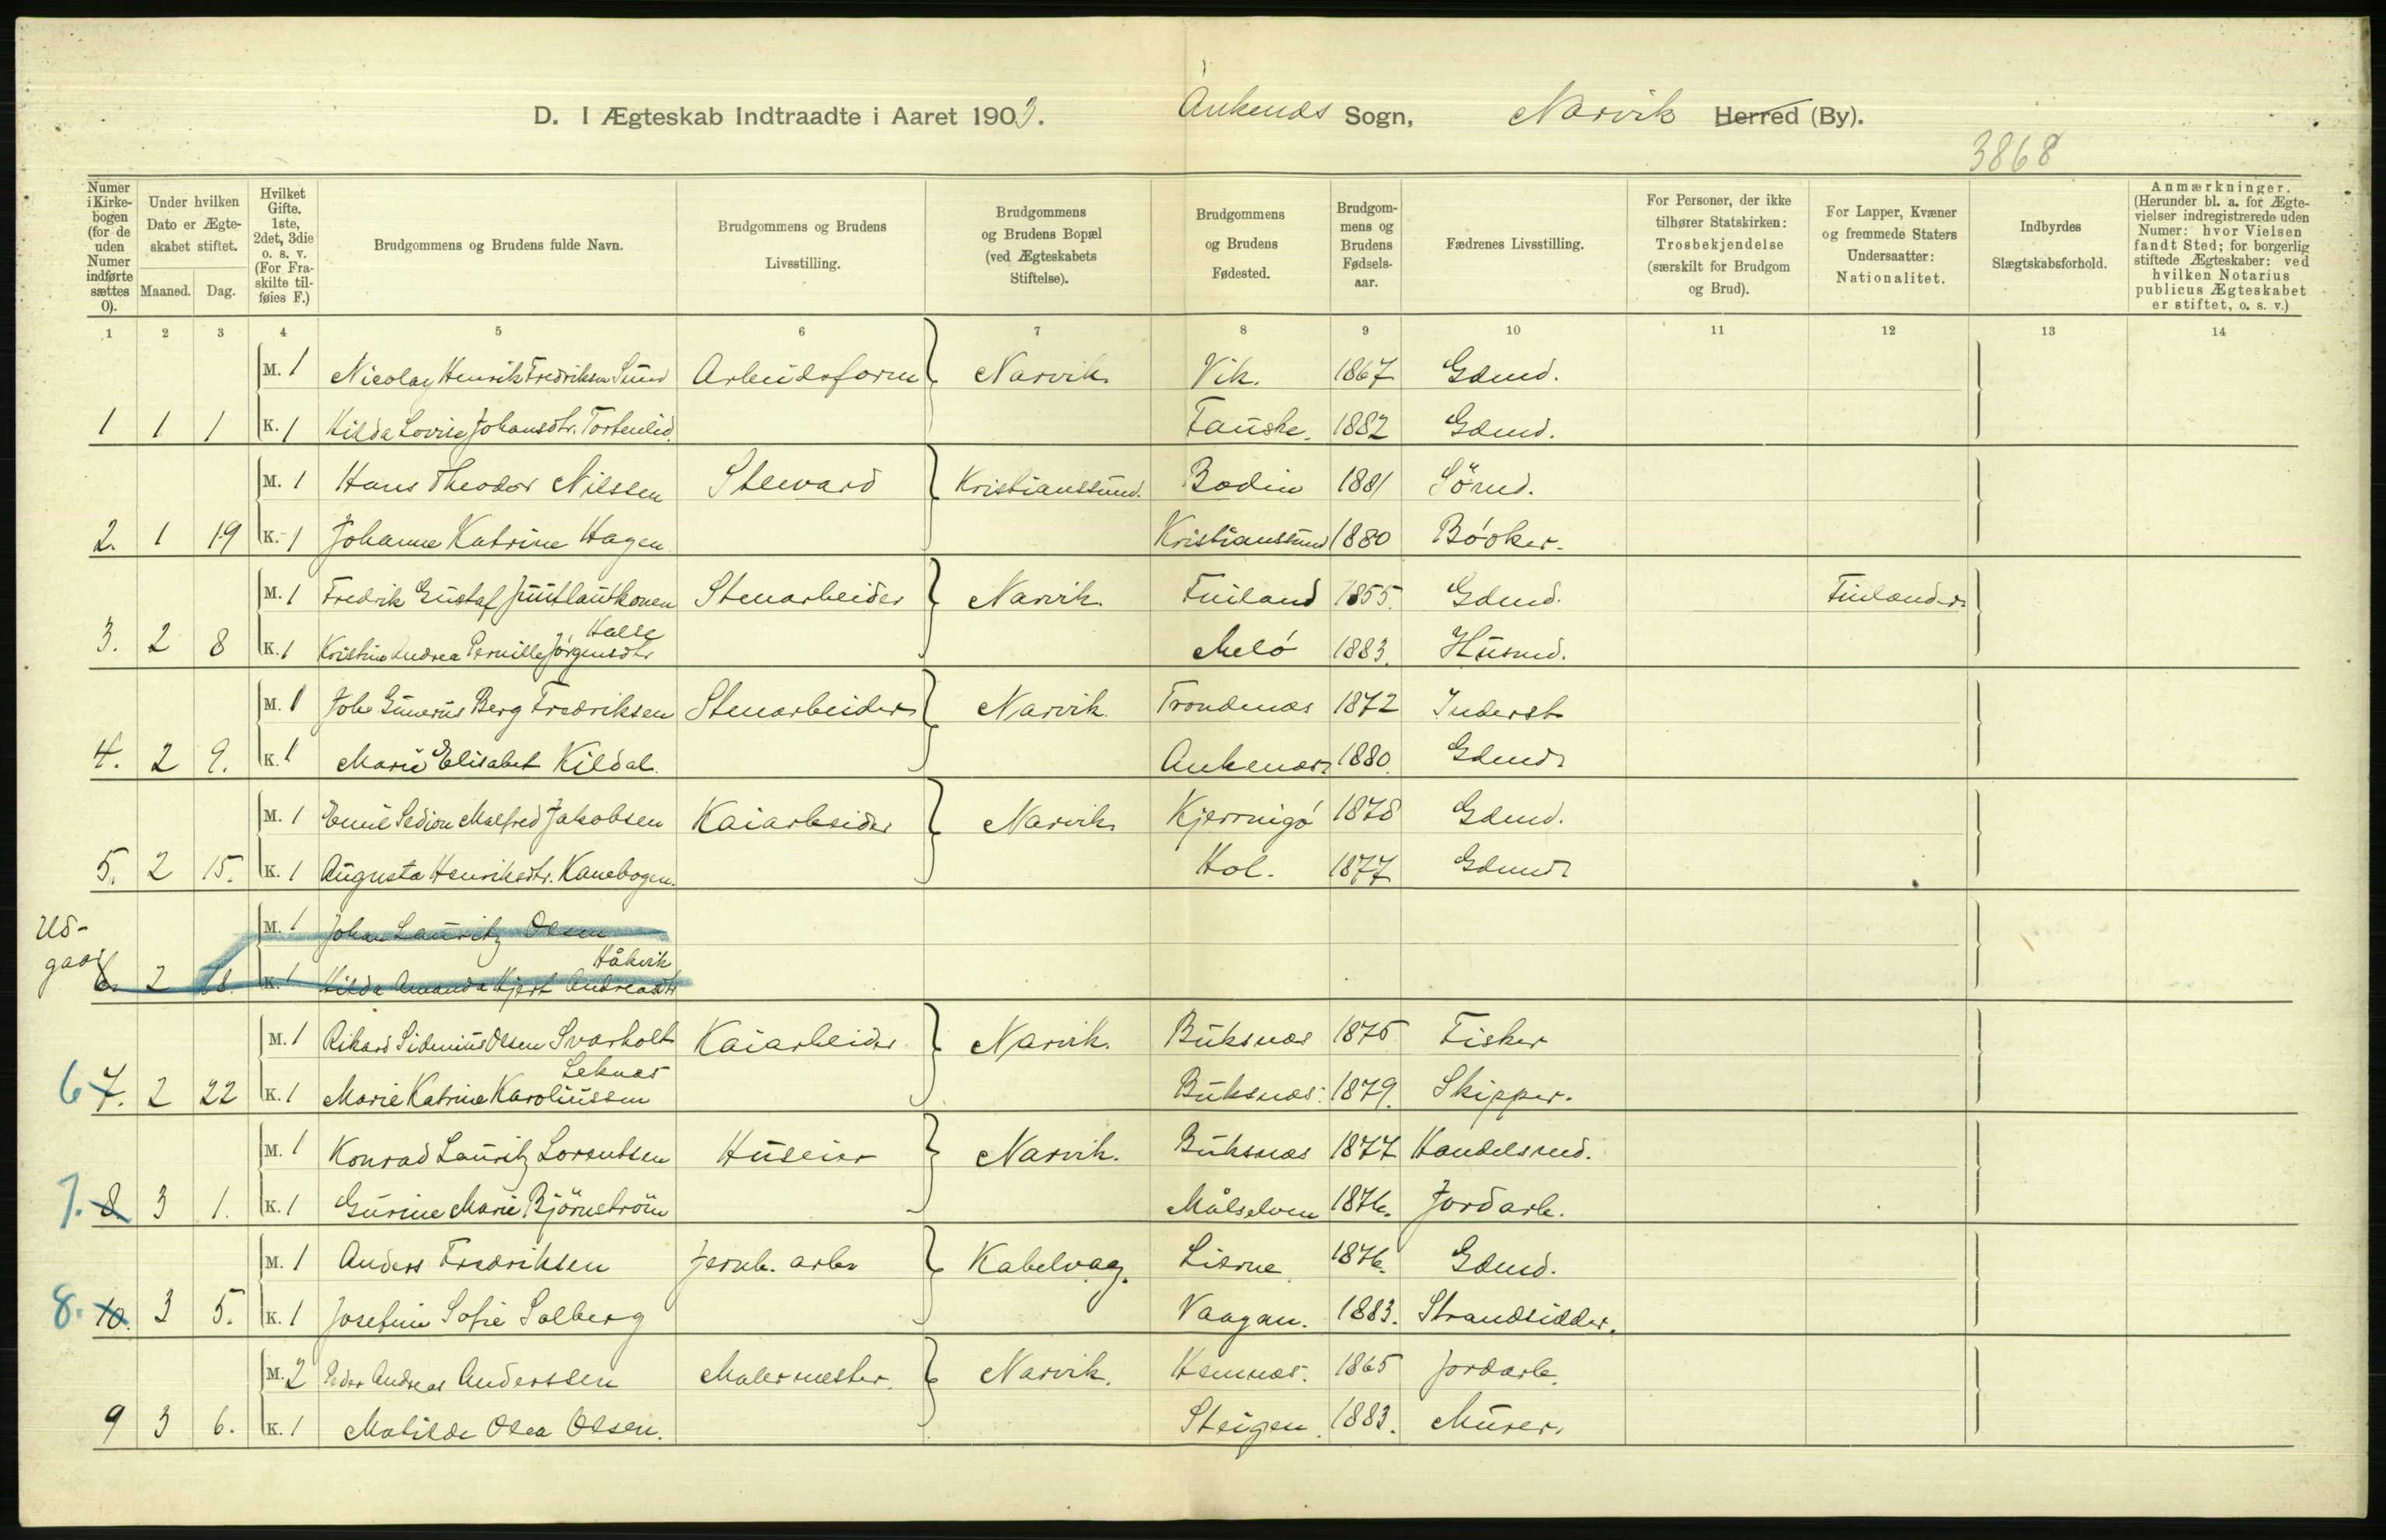 D. I Ægteskab Indtraadte i Aaret 1903. Ankenæs Sogn, Narvik Herred (By).
3868
Numer i Kirkebogen (for de uden Numer indførte sættes 0).
Under hvilken Dato er Ægteskabet stiftet.
Maaned. Dag.
Hvilket Gifte. 1ste, 2det, 3die o. s. v. (For Fraskilte tilføies F.)
Brudgommens og Brudens fulde Navn.
Brudgommens og Brudens Livsstilling.
Brudgommens og Brudens Bopæl (ved Ægteskabets Stiftelse).
Brudgommens og Brudens Fødested.
Brudgommens og Brudens Fødselsaar.
Fædrenes Livsstilling.
For Personer, der ikke tilhører Statskirken: Trosbekjendelse (særskilt for Brudgom og Brud).
For Lapper, Kvæner og fremmede Staters Undersaatter: Nationalitet.
Indbyrdes Slægtskabsforhold.
Anmærkninger. (Herunder bl. a. for Ægtevielser indregistrerede uden Numer: hvor Vielsen fandt Sted; for borgerlig stiftede Ægteskaber: ved hvilken Notarius publicus Ægteskabet er stiftet, o. s. v.)
1 2 3 4 5 6 7 8 9 10 11 12 13 14
M. 1 Nicolay Henrik Fredriksen Sund Arbeidsform Narvik Vik. 1867 Gdmd.
1 1 1 K. 1 Hilda Lovise Johansdtr. Fauske. 1882 Gdmd.
M. 1 Hans Theodor Nilssen Steward Kristianssund. Bodin 1881 Sömd.
2. 1 19 K. 1 Johanne Katrine Hagen Kristianssund 1880 Böoker.
M. 1 Fredrik Gustaf Stenarbeider Narvik Finland 1855. Gdmd. Finlænder
Halse
3. 2 8 K. 1 Kristine Andrea Pernille Jörgensdtr Melö 1883. Husmd.
M. 1 Joh Gunerius Berg Fredriksen Stenarbeider Narvik. Trondenæs 1872 Inderst
4. 2 9. K. 1 Marie Elisabet Kildal. Ankenæs 1880. Gdmd
M. 1 Emil Sedion Malfred Jakobsen Kaiarbeider Narvik Kjerringö 1878 Gdmd.
5. 2 15. K. 1 Augusta Henriksdtr. Kanebogen. Hol. 1877 Gdmd
Ud-
M. 1 Johan Lauritz Olsen
gaar
Håkvik
6. 2 18. K. 1 Hilda Amanda Hjort Andreasdtr
M. 1 Rikard Sidenius Olsen Svarholt Kaiarbeider Narvik. Buksnæs 1875 Fisker
Leknæs
6 7. 2 22 K. 1 Marie Katrine Karoliussen Buksnæs. 1879. Skipper.
M. 1 Konrad Lauritz Lorentsen Huseier Narvik. Buksnæs 1877 Handelsmd.
7. 8 3 1. K. 1 Gurine Marie Björnström Målselven 1876. Jordarb.
M. 1 Anders Fredriksen Jernb. arb. Kabelvag. Lierne 1876. Gdmd.
8. 10. 3 5. K. 1 Josefine Sofie Solberg Vaagan. 1883. Strandsidder.
M. 2 Peder Andreas Anderssen Malermester. Narvik. Hemnæs. 1865 Jordarb.
9 3 6. K. 1 Matilde Olea Olsen. Steigen. 1883. Murer.